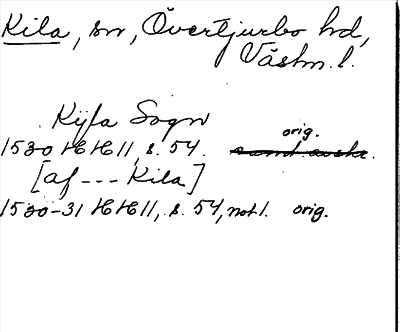 Kila, sn, Övertjurbo hd,
Västm. l.
Kyla Sogn
orig.
1530 HH 11, s. 54. samt. avskr.
[af --- Kila]
1530-31 HH 11, s. 54, not 1. orig.